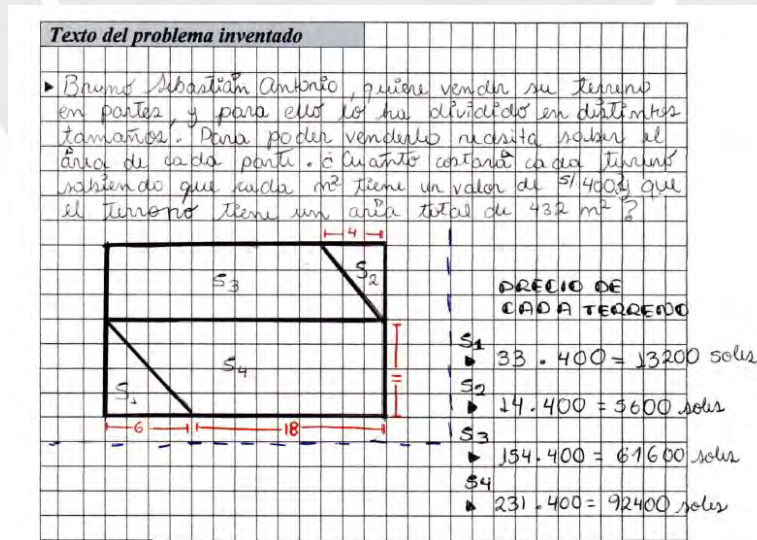 Texto del problema inventado
▸ Bruno Sebastián Antonio, quiere vender su terreno
en partes, y para ello lo ha dividido en distintos
tamaños. Para poder venderlo necesita saber el
área de cada parte. ¿Cuánto costará cada terreno
sabiendo que cada m² tiene un valor de S/400 y que
el terreno tiene un area total de 432 m²?
4
S3
S2
S1
S4
11
6
18
PRECIO DE
CADA TERRENO
S1
▸ 33 . 400 = 13200 soles
S2
▸ 14 . 400 = 5600 soles
S3
▸ 154 . 400 = 61600 soles
S4
▸ 231 . 400 = 92400 soles